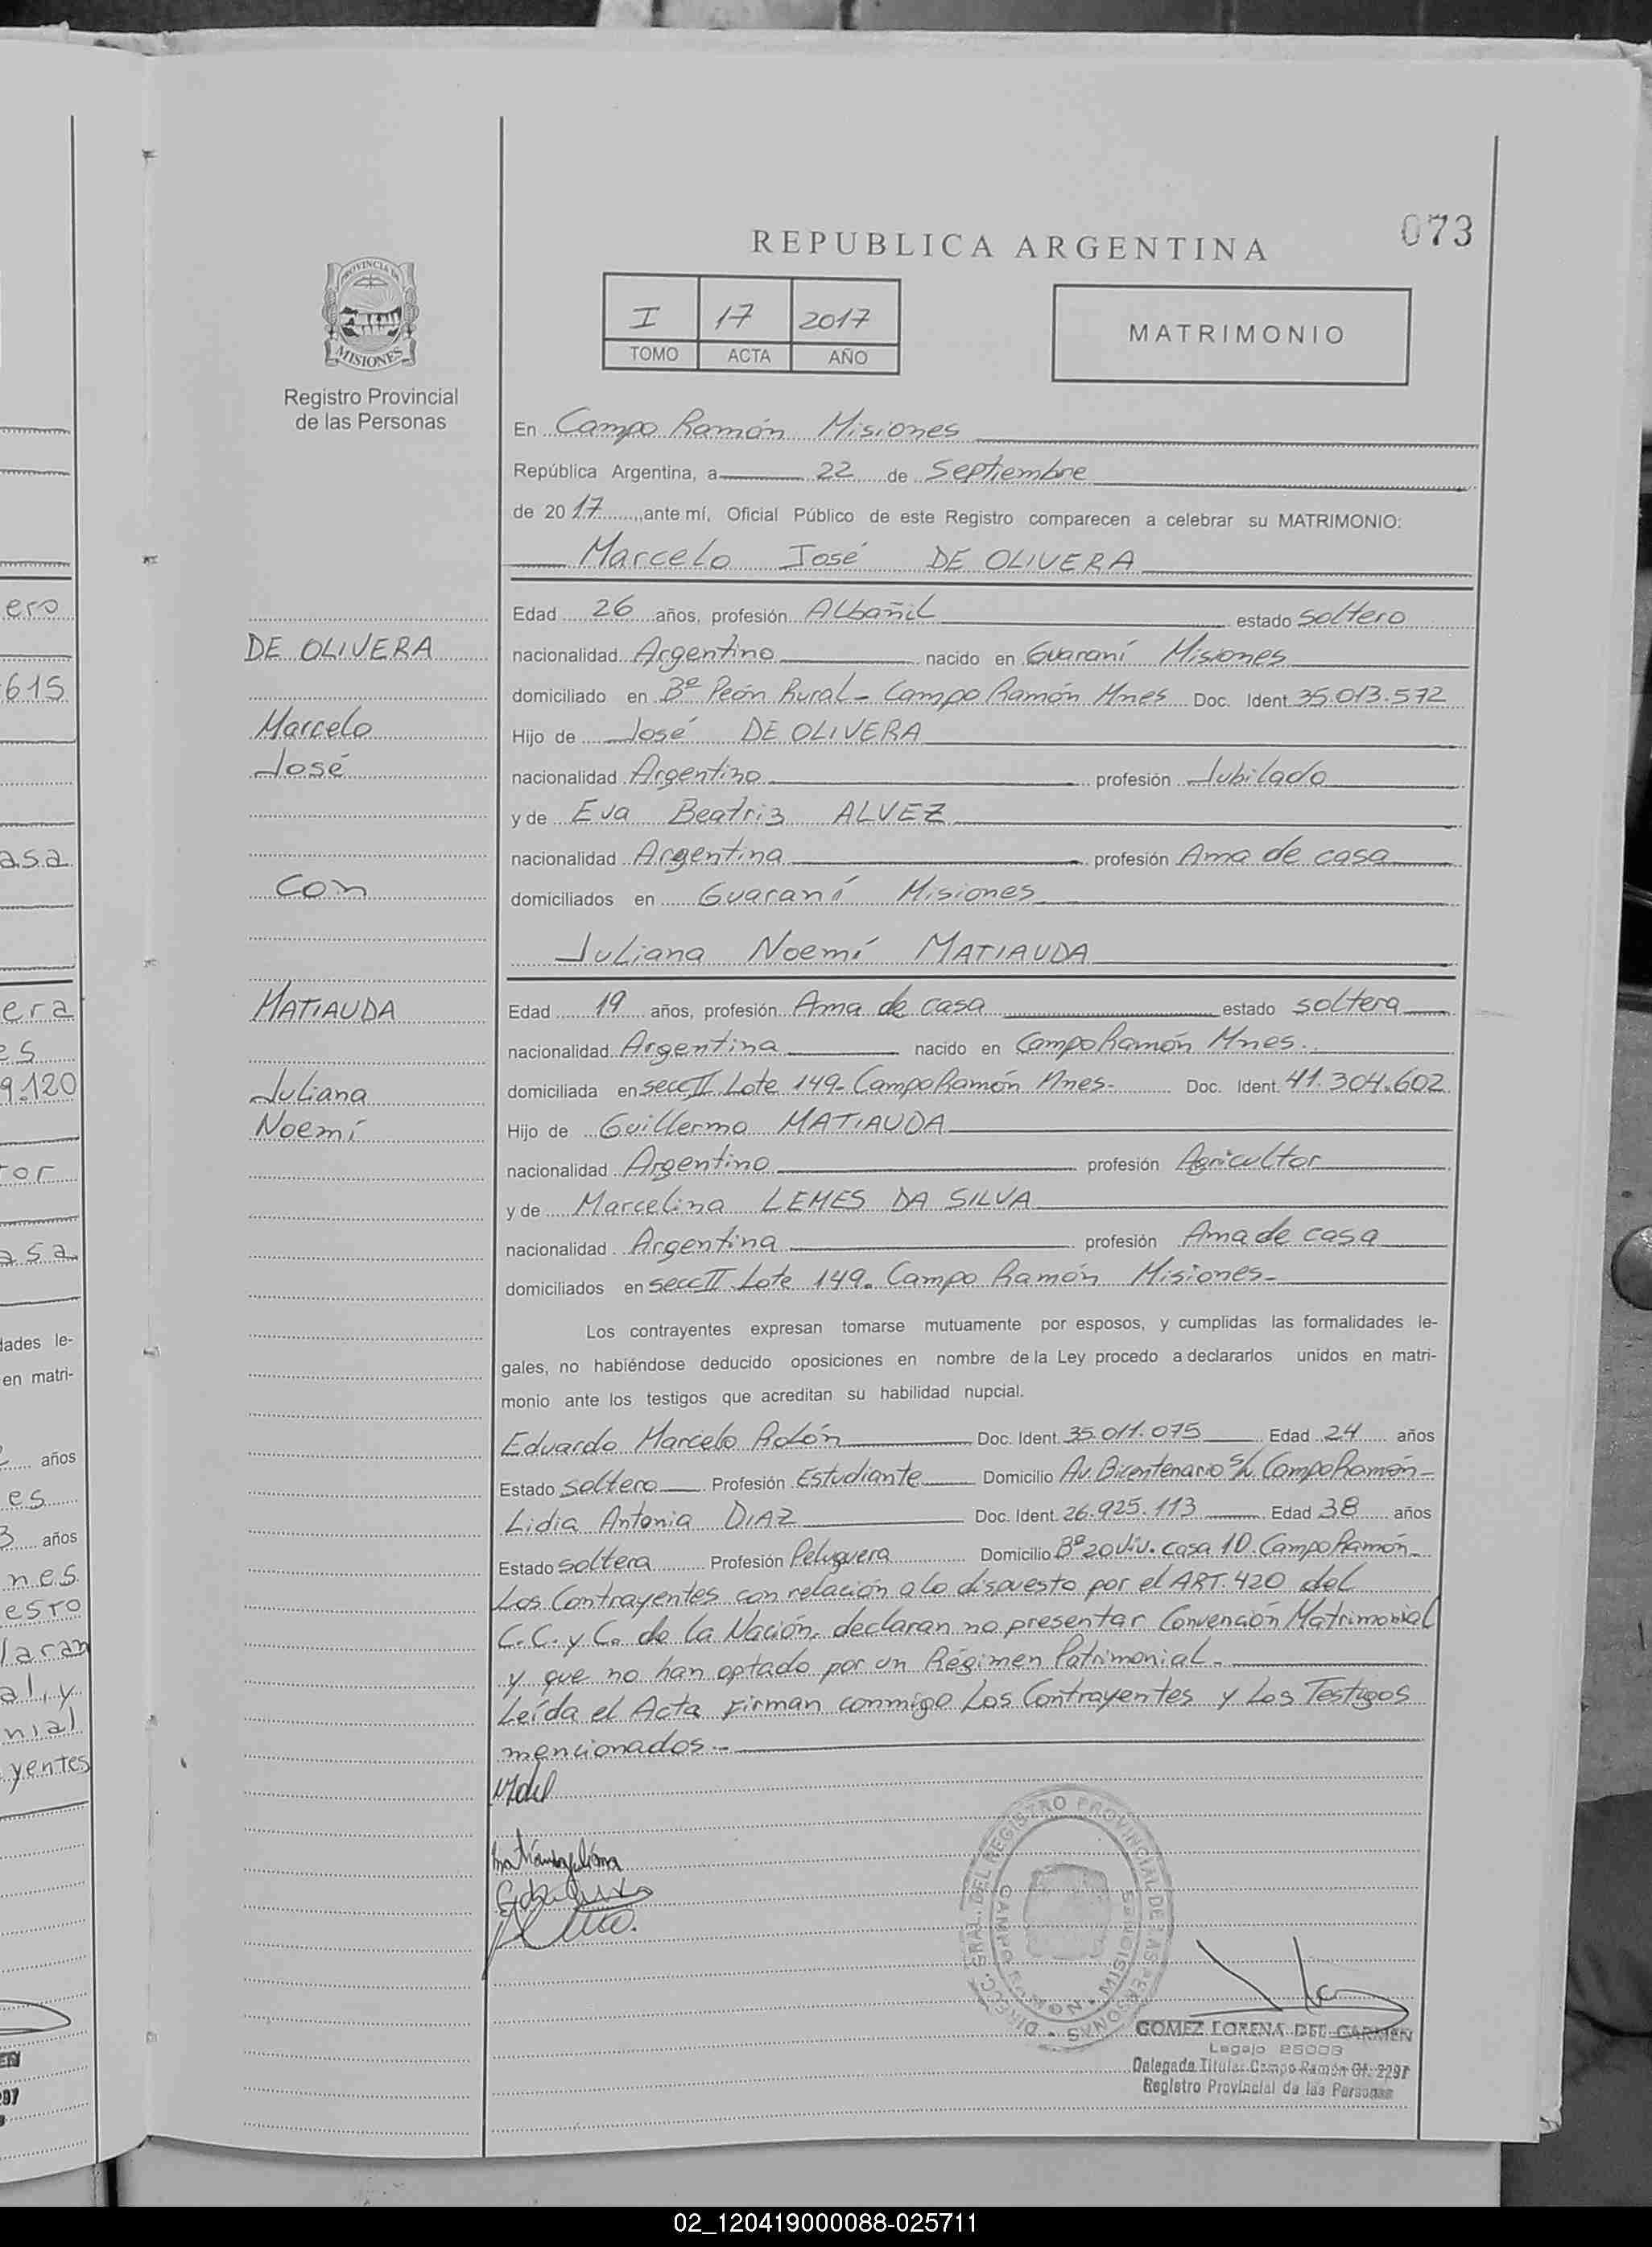 073
REPUBLICA ARGENTINA
PROVINCIA DE
MISIONES
Registro Provincial
de las Personas
I 17 2017
TOMO ACTA AÑO
MATRIMONIO
En Campo Ramón Misiones
República Argentina, a 22 de Septiembre
de 2017, ante mí, Oficial Público de este Registro comparecen a celebrar su MATRIMONIO:
Marcelo José DE OLIVERA
Edad 26 años, profesión Albañil estado soltero
DE OLIVERA
nacionalidad Argentino nacido en Guaraní Misiones
domiciliado en Bº Peón Rural - Campo Ramón Mnes Doc. Ident 35.013.572
Marcelo
Hijo de José DE OLIVERA
José
nacionalidad Argentino profesión Jubilado
y de Eva Beatriz ALVEZ
nacionalidad Argentina profesión Ama de casa
con
domiciliados en Guaraní Misiones
Juliana Noemí MATIAUDA
MATIAUDA
Edad 19 años, profesión Ama de casa estado soltera
nacionalidad Argentina nacido en Campo Ramón Mnes.
Juliana
domiciliada en secc II Lote 149- Campo Ramón Mnes- Doc. Ident. 41.304.602
Noemí
Hijo de Guillermo MATIAUDA
nacionalidad Argentino profesión Agricultor
y de Marcelina LEMES DA SILVA
nacionalidad Argentina profesión Ama de casa
domiciliados en secc II Lote 149. Campo Ramón Misiones-
Los contrayentes expresan tomarse mutuamente por esposos, y cumplidas las formalidades le-
gales, no habiéndose deducido oposiciones en nombre de la Ley procedo a declararlos unidos en matri-
monio ante los testigos que acreditan su habilidad nupcial.
Eduardo Marcelo Rolón Doc. Ident. 35.011.075 Edad 24 años
Estado soltero Profesión Estudiante Domicilio Av. Bicentenario S/N Campo Ramón-
Lidia Antonia DIAZ Doc. Ident. 26.925.113 Edad 38 años
Estado soltera Profesión Peluquera Domicilio Bº 20 Viv. casa 10. Campo Ramón-
Los Contrayentes con relación a lo dispuesto por el ART. 420 del
C.C. y C. de la Nación, declaran no presentar Convención Matrimonial
y que no han optado por un Régimen Patrimonial.-
Leída el Acta Firman conmigo Los Contrayentes y Los Testigos
mencionados.-
DIRECC. GRAL. DEL REGISTRO PROVINCIAL DE LAS PERSONAS
MISIONES
GOMEZ LORENA DEL CARMEN
Legajo 25003
Delegada Titular Campo Ramón Of. 2297
Registro Provincial de las Personas
ero
615
asa
era
es
9.120
tor
asa
dades le-
en matri-
años
es
3 años
nes
esto
laran
al, y
nial
yentes
02_120419000088-025711